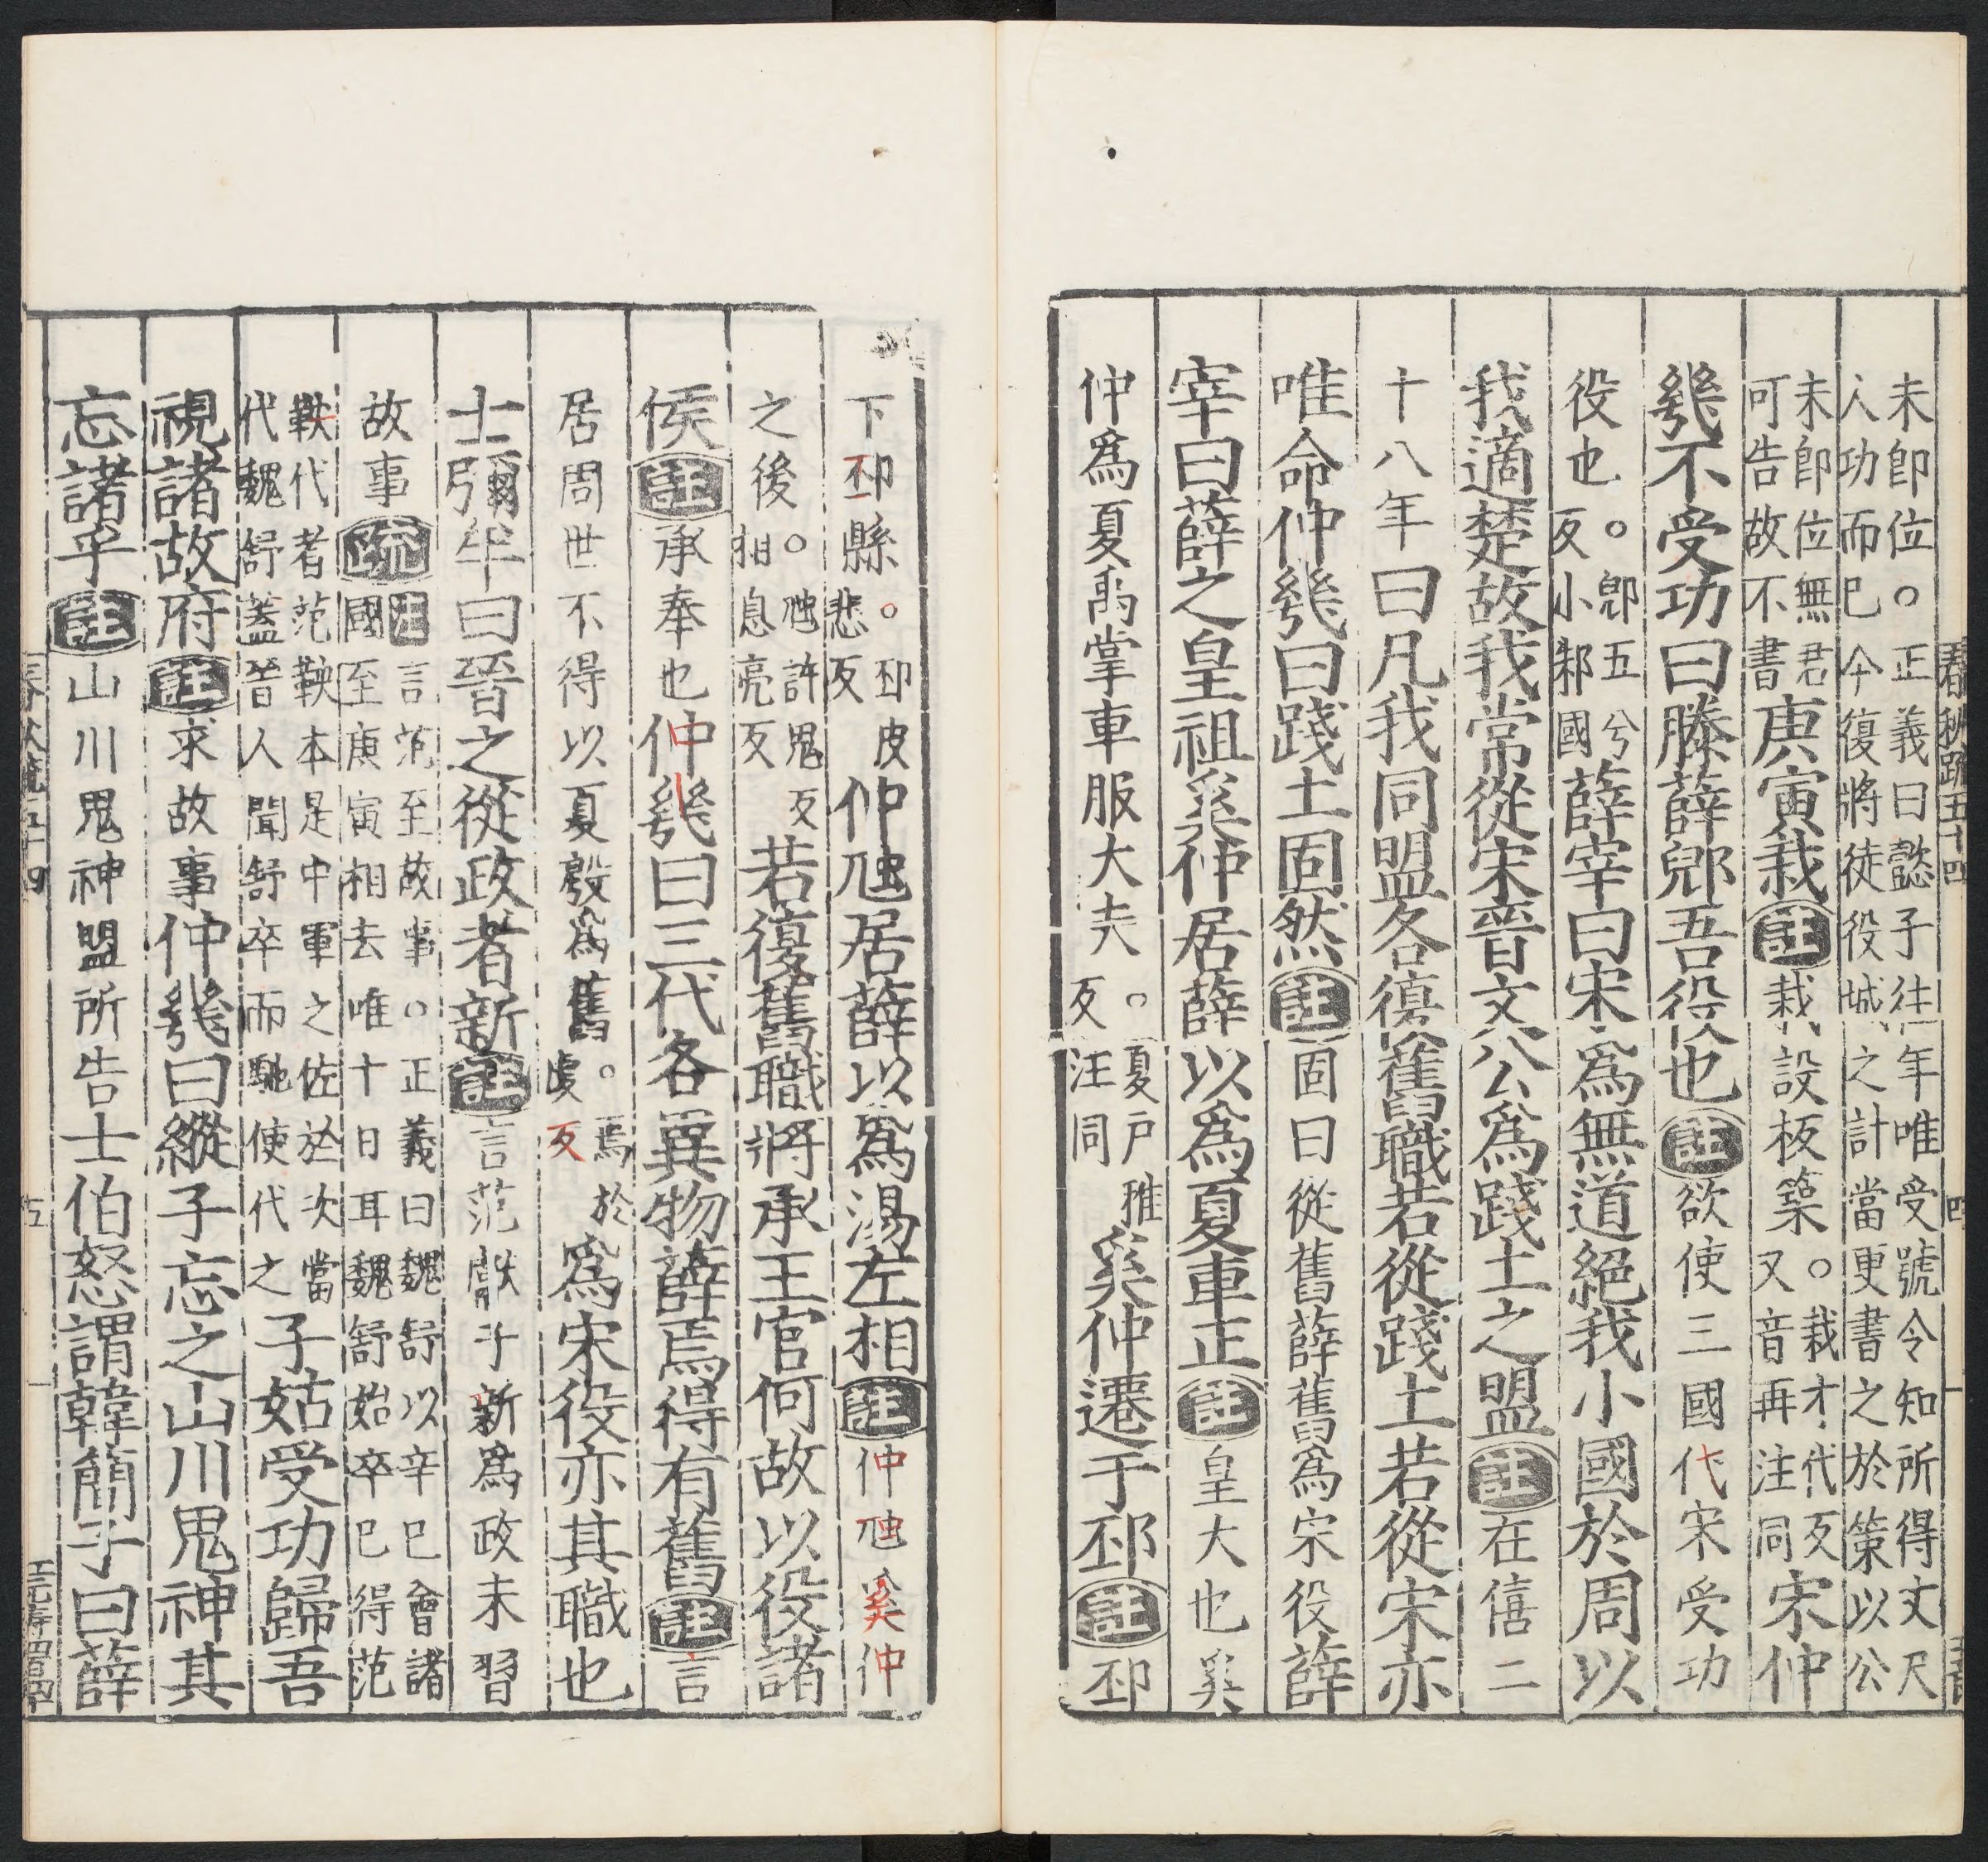 春秋疏五十四 四
未卽位。正義曰懿子往年唯受號令知所得丈尺
人功而巳今復將徒役城之計當更書之於策以公
未卽位無君可告故不書庚寅栽註栽設板築。栽才代反又音再注同宋仲
幾不受功曰滕薛郳吾役也註欲使三國代宋受功
役也。郳五兮反小邾國薛宰曰宋爲無道絕我小國於周以
我適楚故我常從宋晉文公爲踐土之盟註在僖二
十八年曰凡我同盟各復舊職若從踐土若從宋亦
唯命仲幾曰踐土固然註固曰從舊薛舊爲宋役薛
宰曰薛之皇祖奚仲居薛以爲夏車正註皇大也奚
仲爲夏禹掌車服大夫。夏戶雅反注同奚仲遷于邳註邳
下邳縣。邳皮悲反仲虺居薛以爲湯左相註仲虺奚仲
之後。虺許鬼反相息亮反若復舊職將承王官何故以役諸
侯註承奉也仲幾曰三代各異物薛焉得有舊註言
居周世不得以夏殷爲舊。焉於虔反爲宋役亦其職也
士彌牟曰晉之從政者新註言范獻子新爲政未習
故事疏注言范至故事。正義曰魏舒以辛巳會諸
國至庚寅相去唯十日耳魏舒始卒巳得范
鞅代者范鞅本是中軍之佐於次當代魏舒蓋晉人聞舒卒而馳使代之子姑受功歸吾
視諸故府註求故事仲幾曰縱子忘之山川鬼神其
忘諸乎註山川鬼神盟所告士伯怒謂韓簡子曰薛
春秋疏五十四 五